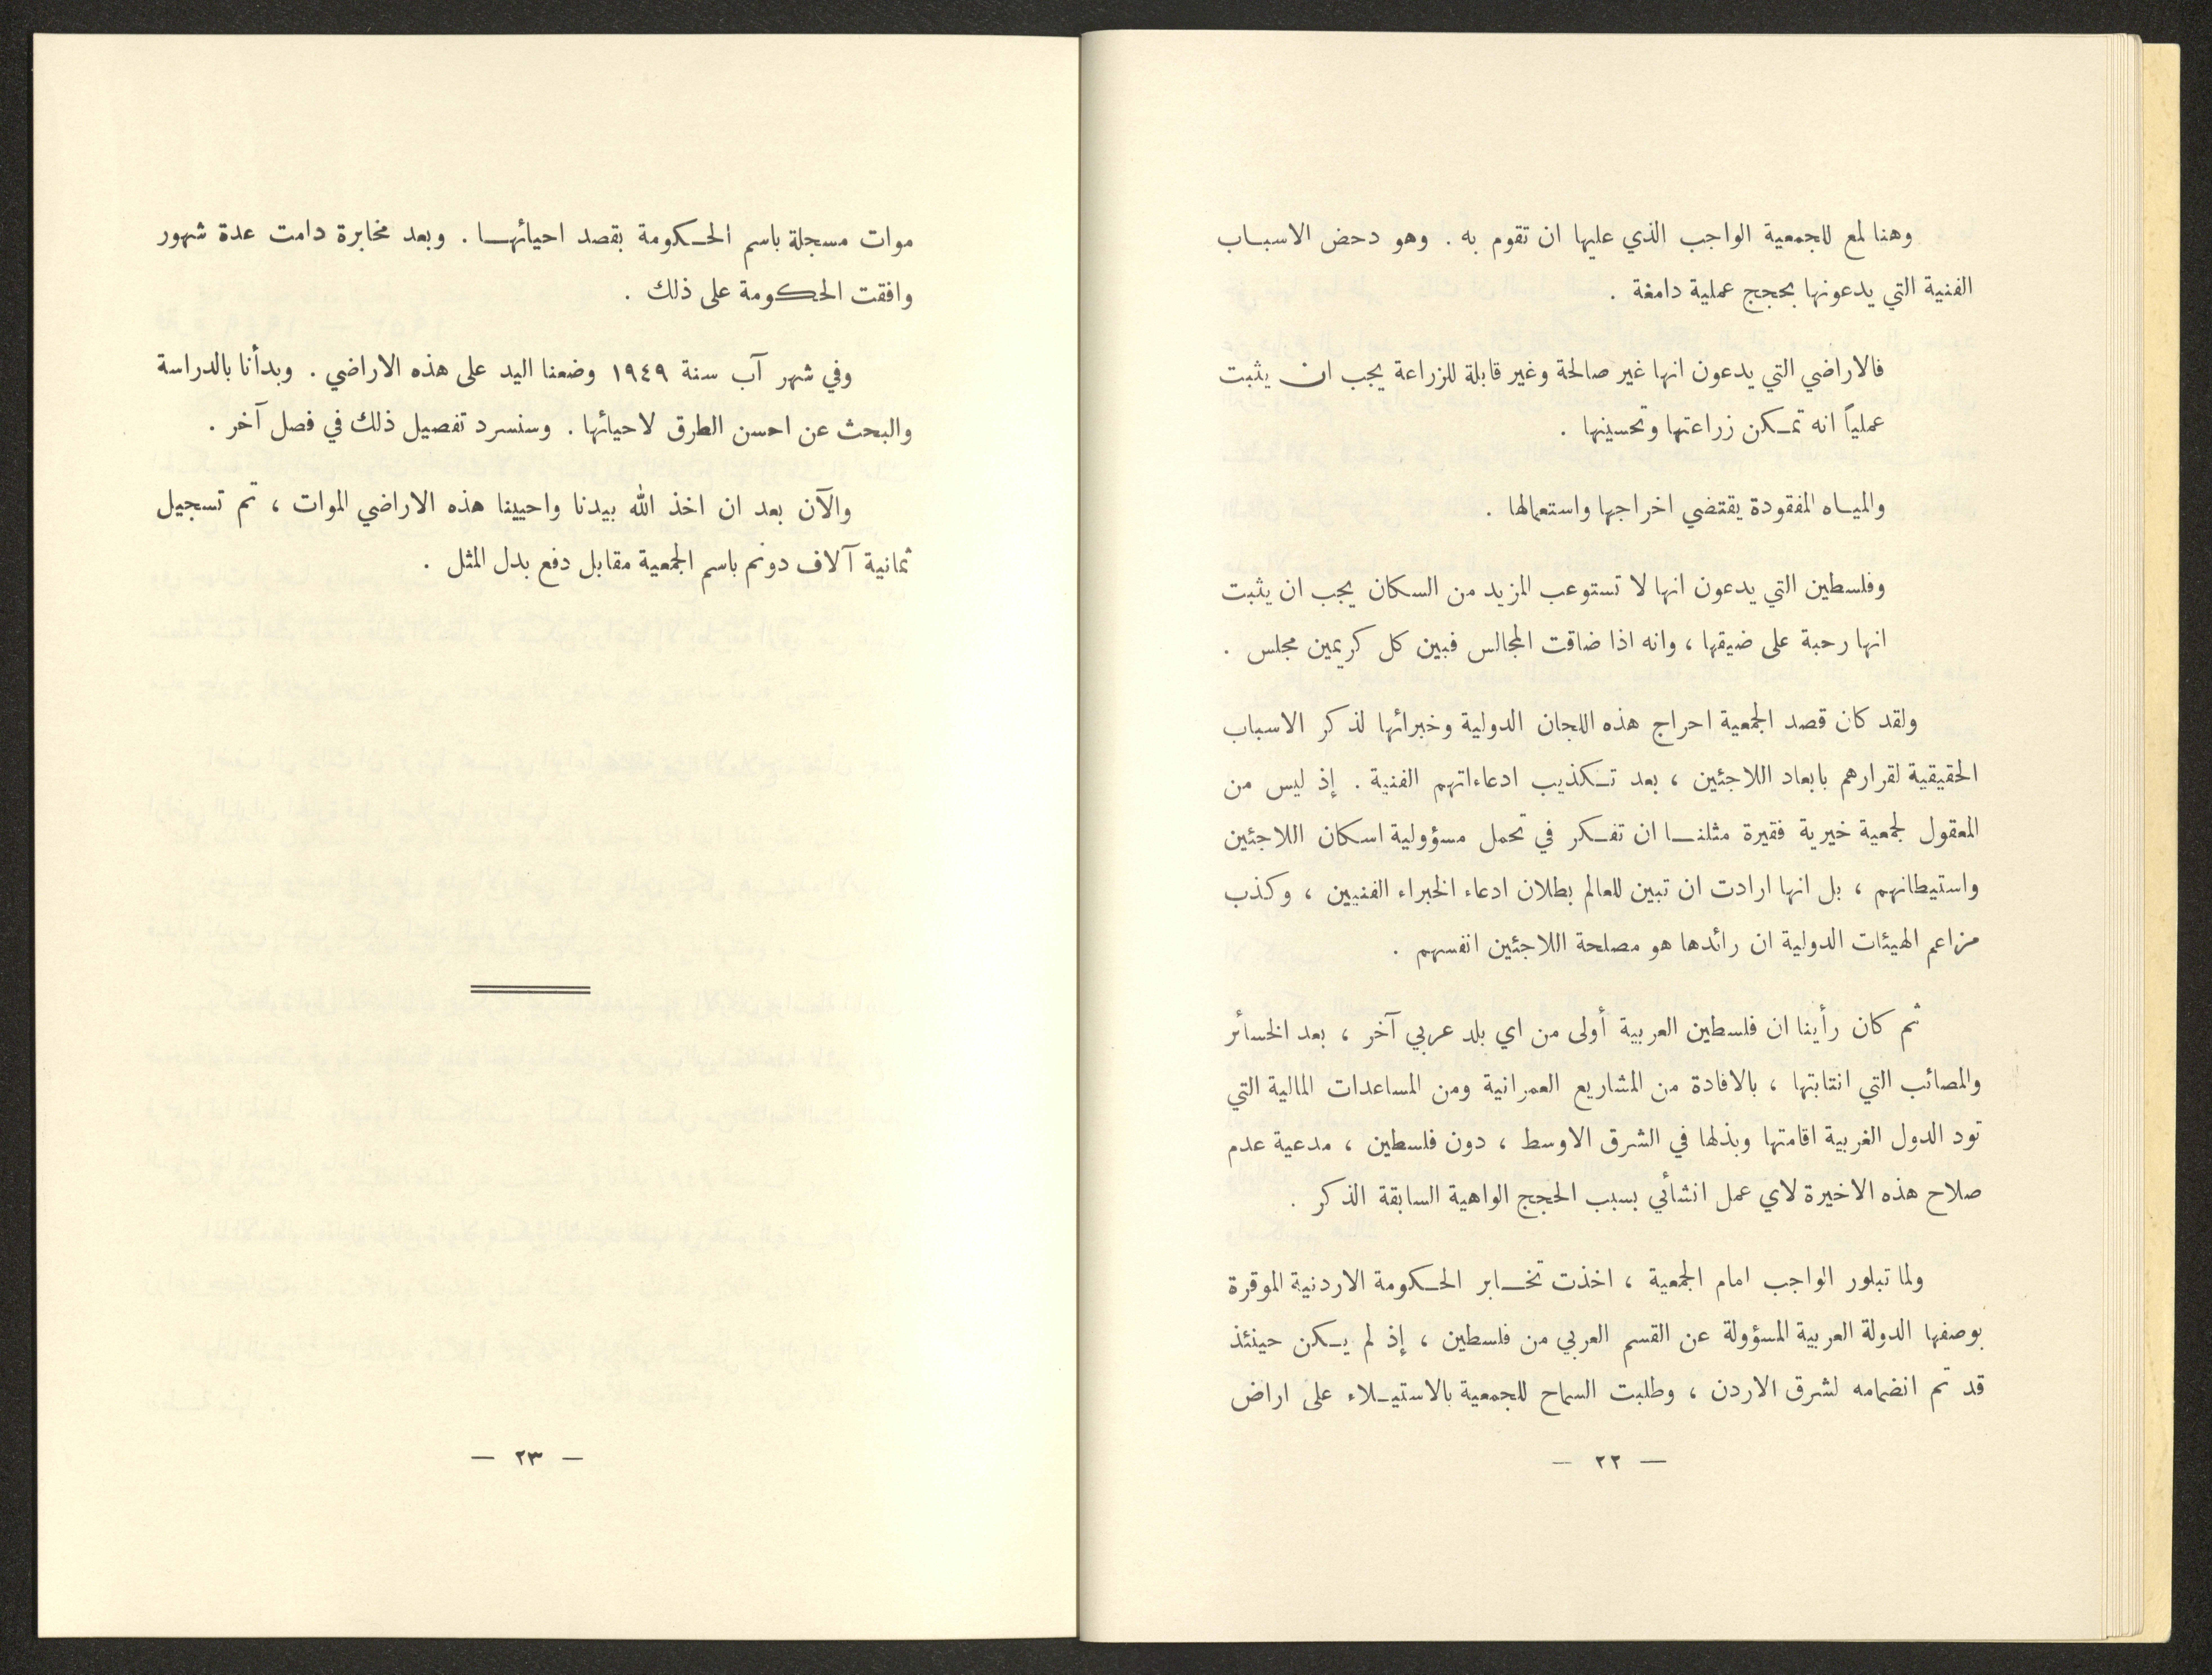 وهنا لمع للجمعية الواجب الذي عليها ان تقوم به . وهو دحض الاسباب
الفنية التي يدعونها بحجج عملية دامغة .
فالاراضي التي يدعون انها غير صالحة وغير قابلة للزراعة يجب ان يثبت
عملياً انه تمكن زراعتها وتحسينها .
والمياه المفقودة يقتضي اخراجها واستعمالها .
وفلسطين التي يدعون انها لا تستوعب المزيد من السكان يجب ان يثبت
انها رحبة على ضيقها ، وانه اذا ضاقت المجالس فبين كل كريمين مجلس .
ولقد كان قصد الجمعية احراج هذه اللجان الدولية وخبرائها لذكر الاسباب
الحقيقية لقرارهم بابعاد اللاجئين ، بعد تكذيب ادعاءاتهم الفنية . إذ ليس من
المعقول لجمعية خيرية فقيرة مثلنا ان تفكر في تحمل مسؤولية اسكان اللاجئين
واستيطانهم ، بل انها ارادت ان تبين للعالم بطلان ادعاء الخبراء الفنيين ، وكذب
مزاعم الهيئات الدولية ان رائدها هو مصلحة اللاجئين انفسهم .
ثم كان رأينا ان فلسطين العربية أولى من اي بلد عربي آخر ، بعد الخسائر
والمصائب التي انتابتها ، بالافادة من المشاريع العمرانية ومن المساعدات المالية التي
تود الدول الغربية اقامتها وبذلها في الشرق الاوسط ، دون فلسطين ، مدعية عدم
صلاح هذه الاخيرة لاي عمل انشائي بسبب الحجج الواهية السابقة الذكر .
ولما تبلور الواجب امام الجمعية ، اخذت تخابر الحكومة الاردنية الموقرة
بوصفها الدولة العربية المسؤولة عن القسم العربي من فلسطين ، إذ لم يكن حينئذ
قد تم انضمامه لشرق الاردن ، وطلبت السماح للجمعية بالاستيلاء على اراض
— ٢٢ —
موات مسجلة باسم الحكومة بقصد احيائها . وبعد مخابرة دامت عدة شهور
وافقت الحكومة على ذلك .
وفي شهر آب سنة ١٩٤٩ وضعنا اليد على هذه الاراضي . وبدأنا بالدراسة
والبحث عن احسن الطرق لاحيائها . وسنسرد تفصيل ذلك في فصل آخر .
والآن بعد ان اخذ الله بيدنا واحيينا هذه الاراضي الموات ، تم تسجيل
ثمانية آلاف دونم باسم الجمعية مقابل دفع بدل المثل .
— ٢٣ —